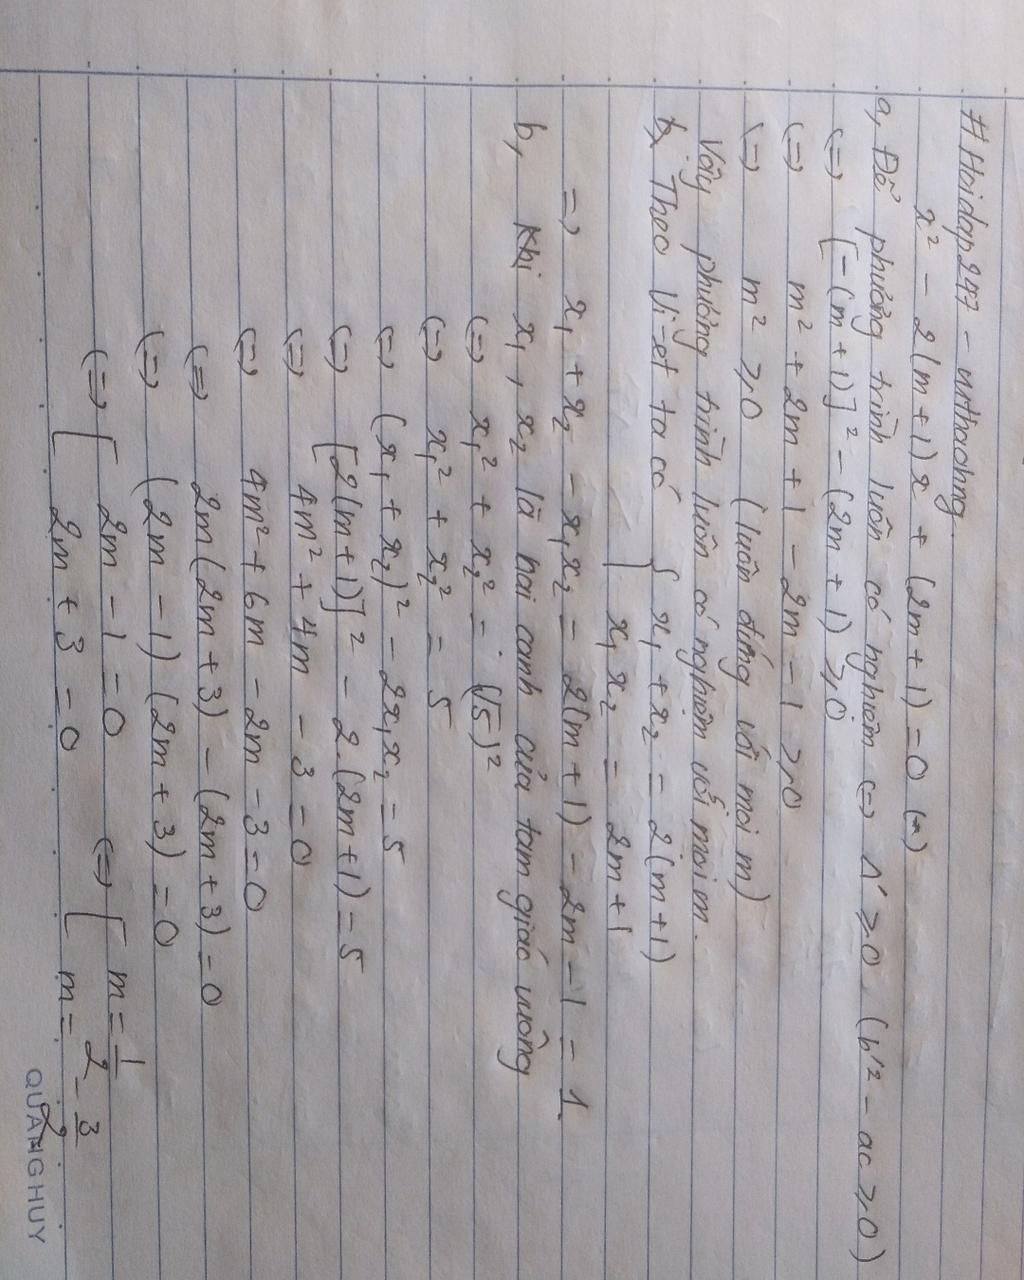 # Hoidap247 - nrthaohng.
x² - 2(m+1)x + (2m+1) = 0 (*)
a, Để phương trình luôn có nghiệm (=) Δ' ≥ 0 (b'² - ac ≥ 0)
(=) [-(m+1)]² - (2m+1) ≥ 0
(=) m² + 2m + 1 - 2m - 1 ≥ 0
(=) m² ≥ 0 (luôn đúng với mọi m)
Vậy phương trình luôn có nghiệm với mọi m.
Theo Vi-et ta có { x₁ + x₂ = 2(m+1)
x₁x₂ = 2m+1
=> x₁ + x₂ - x₁x₂ = 2(m+1) - 2m - 1 = 1.
b, Khi x₁, x₂ là hai cạnh của tam giác vuông
(=) x₁² + x₂² = (√5)²
(=) x₁² + x₂² = 5
(=) (x₁ + x₂)² - 2x₁x₂ = 5
(=) [2(m+1)]² - 2.(2m+1) = 5
(=) 4m² + 4m - 3 = 0
(=) 4m² + 6m - 2m - 3 = 0
(=) 2m(2m+3) - (2m+3) = 0
(=) (2m - 1)(2m+3) = 0
(=) [ 2m - 1 = 0 (=) [ m = 1/2
2m + 3 = 0 m = -3/2
QUANG HUY